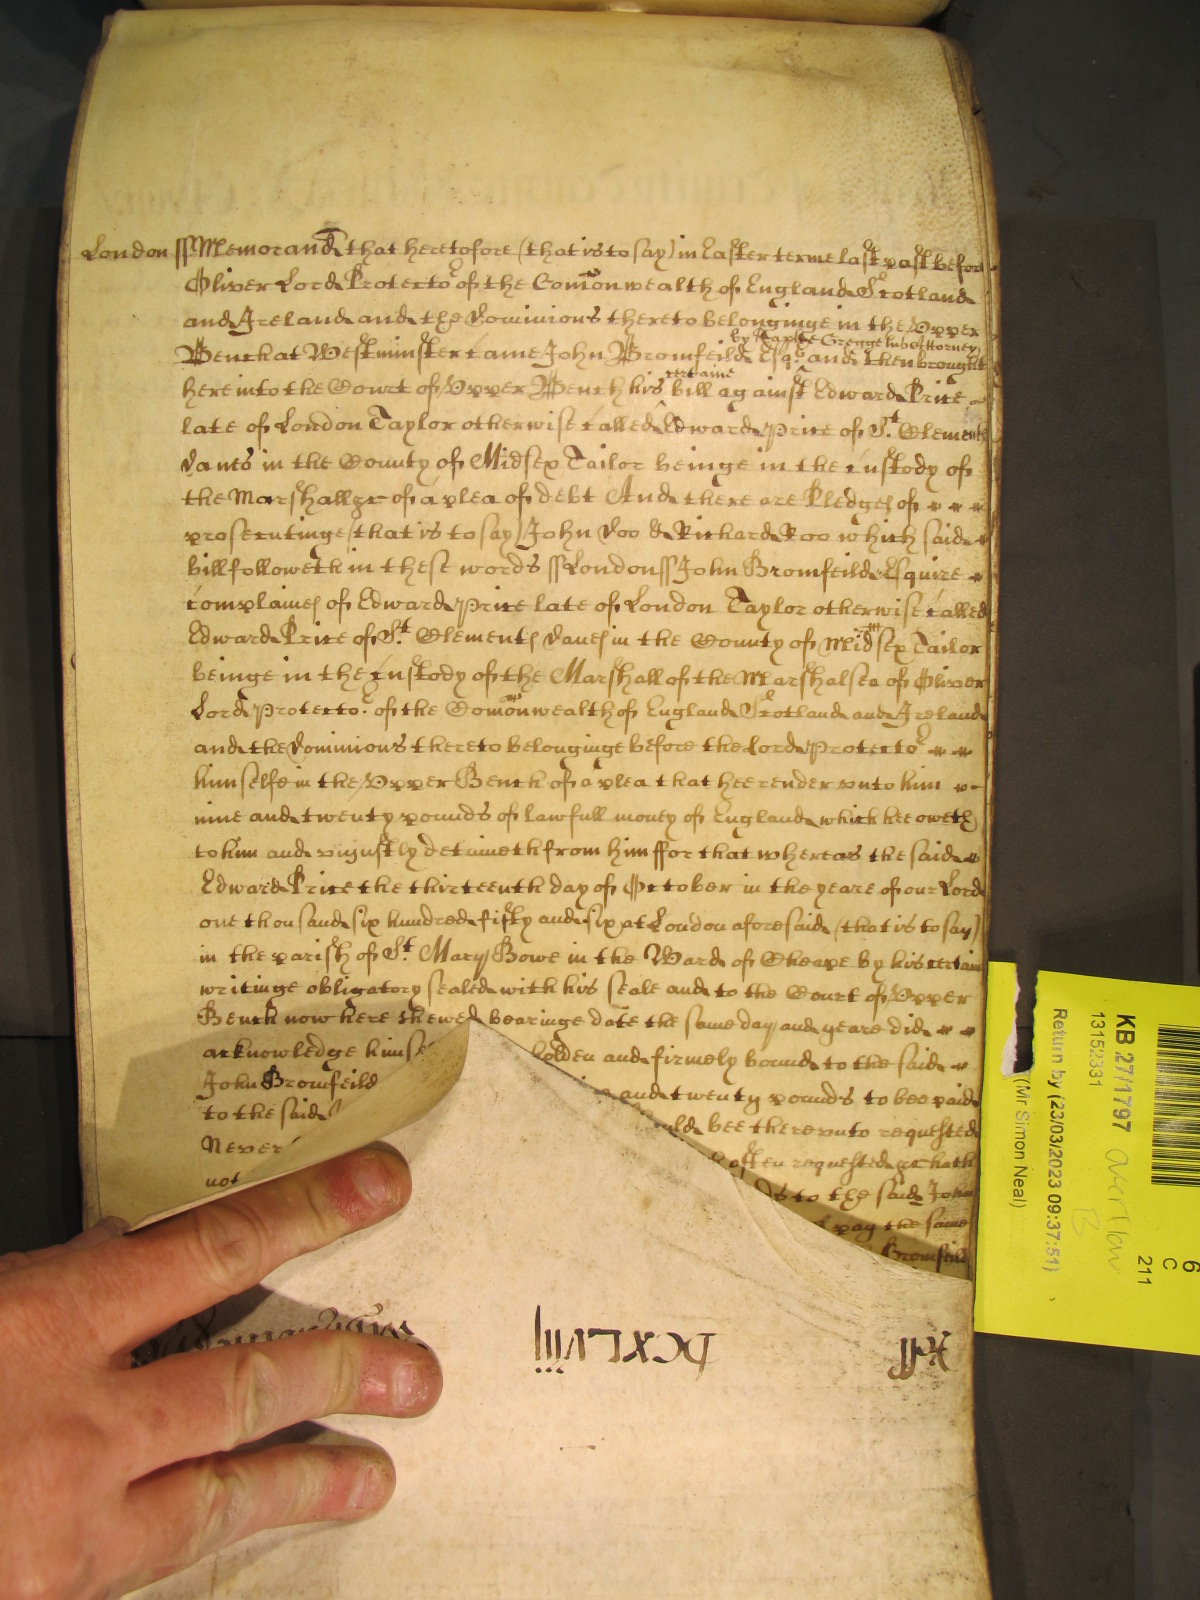 London ss Memorand that heretofore (that is to say) in Easter terme last past before
Oliver Lord Protector of the Comonwealth of England Scotland
and Ireland and the Dominions thereto belonginge in the Upper
by Gregge his Attorney
Bench at Westminster came John Bromfeild Esqr and then brought
certaine
here into the Court of Upper Bench his bill against Edward Price
late of London Taylor otherwise called Edward Price of St. Clement
Danes in the County of Midsex Tailor beinge in the custody of
the Marshall &c of a plea of debt And there are Pledges of
prosecutinge (that is to say) John Doo & Richard Roo which said
bill followeth in these words ss London ss John Bromfeild Esquire
complaines of Edward Price late of London Taylor otherwise called
Edward Price of St. Clements Danes in the County of Midsex Tailor
beinge in the custody of the Marshall of the Marshalsea of Oliver
Lord Protector of the Comonwealth of England Scotland and Ireland
and the Dominions thereto belonginge before the Lord Protector
himselfe in the Upper Bench of a plea that hee render unto him
nine and twenty pounds of lawfull money of England which hee oweth
to him and uniustly detaineth from him ffor that whereas the said
Edward Price the thirteenth day of October in the yeare of our Lord
one thousand six hundred fifty and six at London aforesaid (that is to say)
in the parish of St. Mary Bowe in the Ward of Cheape by his certain
writinge obligatory sealed with his seale and to the Court of Upper
Bench now here shewed bearinge date the same day and yeare did
acknowledge himse holden and firmely bound to the said
John Bromfeild and twenty pounds to bee paid
to the said uld bee thereunto requested
Never often requested &c hath
not ds to the said John
pay the same
Bromfeild
Roll
DCXLViij
KB 27/1797
13152331
Return by (23/03/2023 09:37:51)
(Mr Simon Neal)
overflow
B
6
C
211